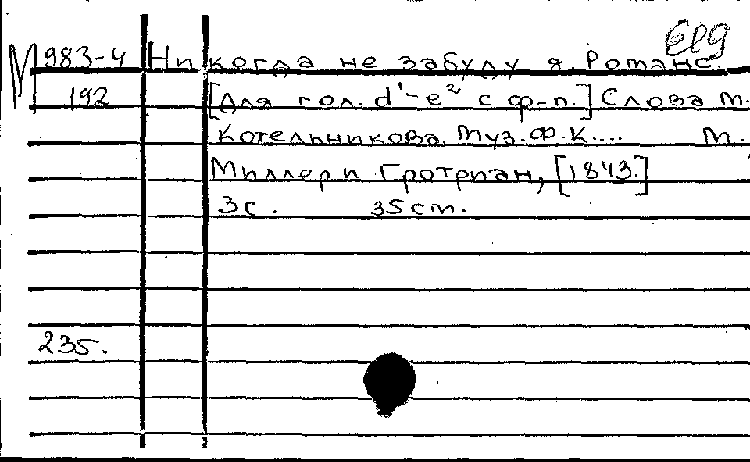 М 983-4 Никогда не забуду я. Романс.
192 [Для гол. d'-e² с ф-п.] Слова М.
Котельникова. Муз. Ф.К.... М.
Миллер и Гротриан, [1843.]
3с. 35cm.
235.